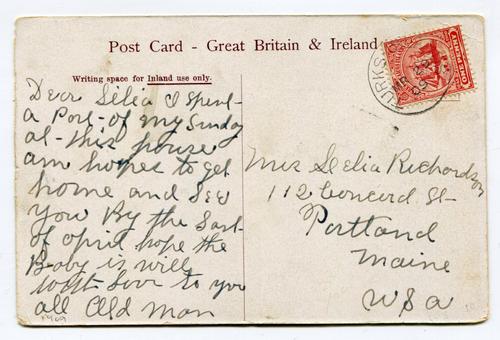 Post Card - Great Britain & Ireland
Writing space for Inland use only.
Dear Lelia I spent
a Part of my Sunday
at this house
am hopes to get
home and See
you By the Last
of april hope the
Baby is will
with Love to you
all Old Man
1909
Mrs Lelia Richardson
112 Concord St
Portland
Maine
USa
TURKS
MR 22
09